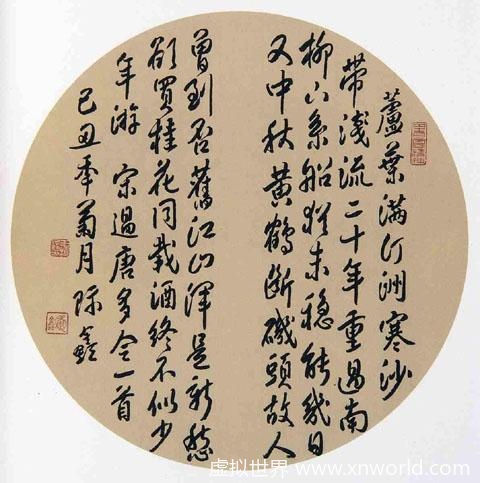 蘆葉滿汀洲寒沙
帶淺流二十年重過南
柳下系船猶未穩能幾日
又中秋黃鶴斷磯頭故人
曾到否舊江山渾是新愁
欲買桂花同載酒終不似少
年游 宋過唐多令一首
己丑秊菊月
虚拟世界 www.xnworld.com